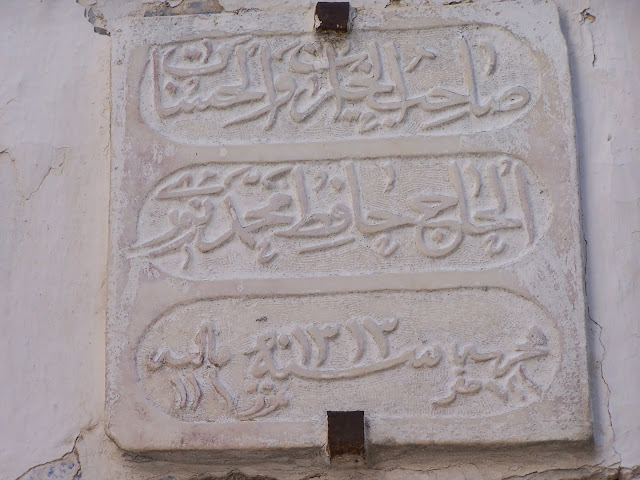 صاحب الخيرات والحسنات
الحاج حافظ محمد نوري
سنة ١٣١٣